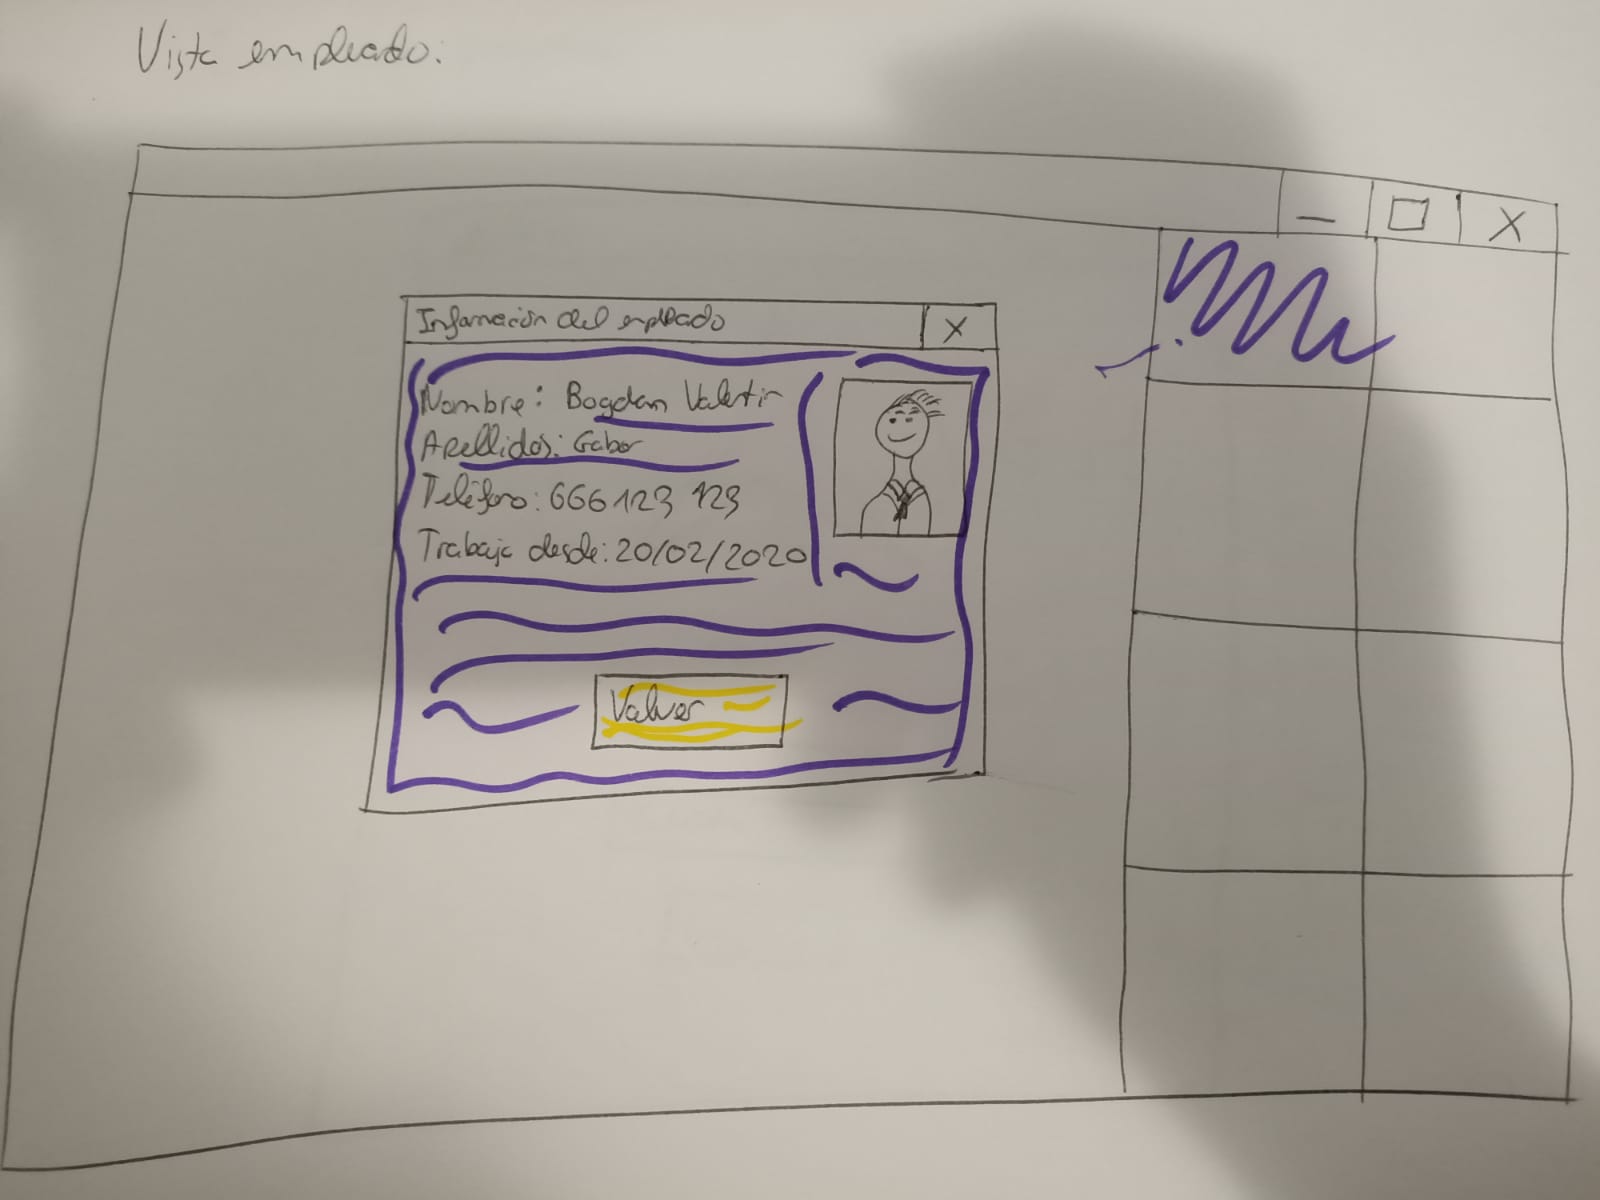 Vista empleado:
Información del empleado X
Nombre: Bogdan Valentin
Apellidos: Gabor
Teléfono: 666 123 123
Trabaja desde: 20/02/2020
Volver